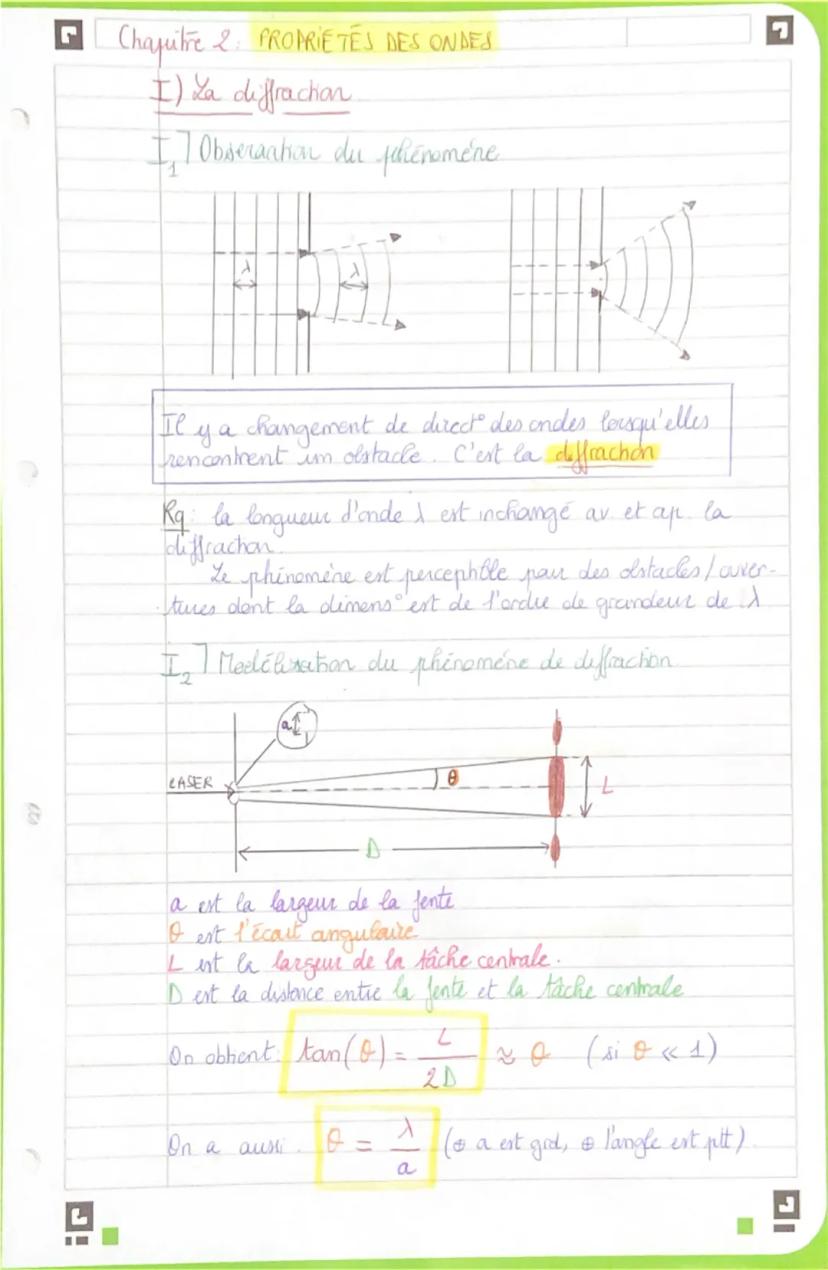 Chapitre 2: PROPRIÉTÉS DES ONDES
I) La diffraction
I1] Observation du phénomène
λ λ
Il y a changement de direct° des ondes lorsqu'elles
rencontrent un obstacle. C'est la diffraction
Rq: la longueur d'onde λ est inchangé av. et ap. la
diffraction.
Le phénomène est perceptible pour des obstacles/ouver-
tures dont la dimens° est de l'ordre de grandeur de λ
I2] Modélisation du phénomène de diffraction
a
LASER θ L
D
a est la largeur de la fente
θ est l'écart angulaire
L est la largeur de la tâche centrale.
D est la distance entre la fente et la tâche centrale
On obtient: tan(θ) = L / 2D ≈ θ (si θ << 1)
On a aussi: θ = λ / a (⊕ a est grd, ⊕ l'angle est ptt).